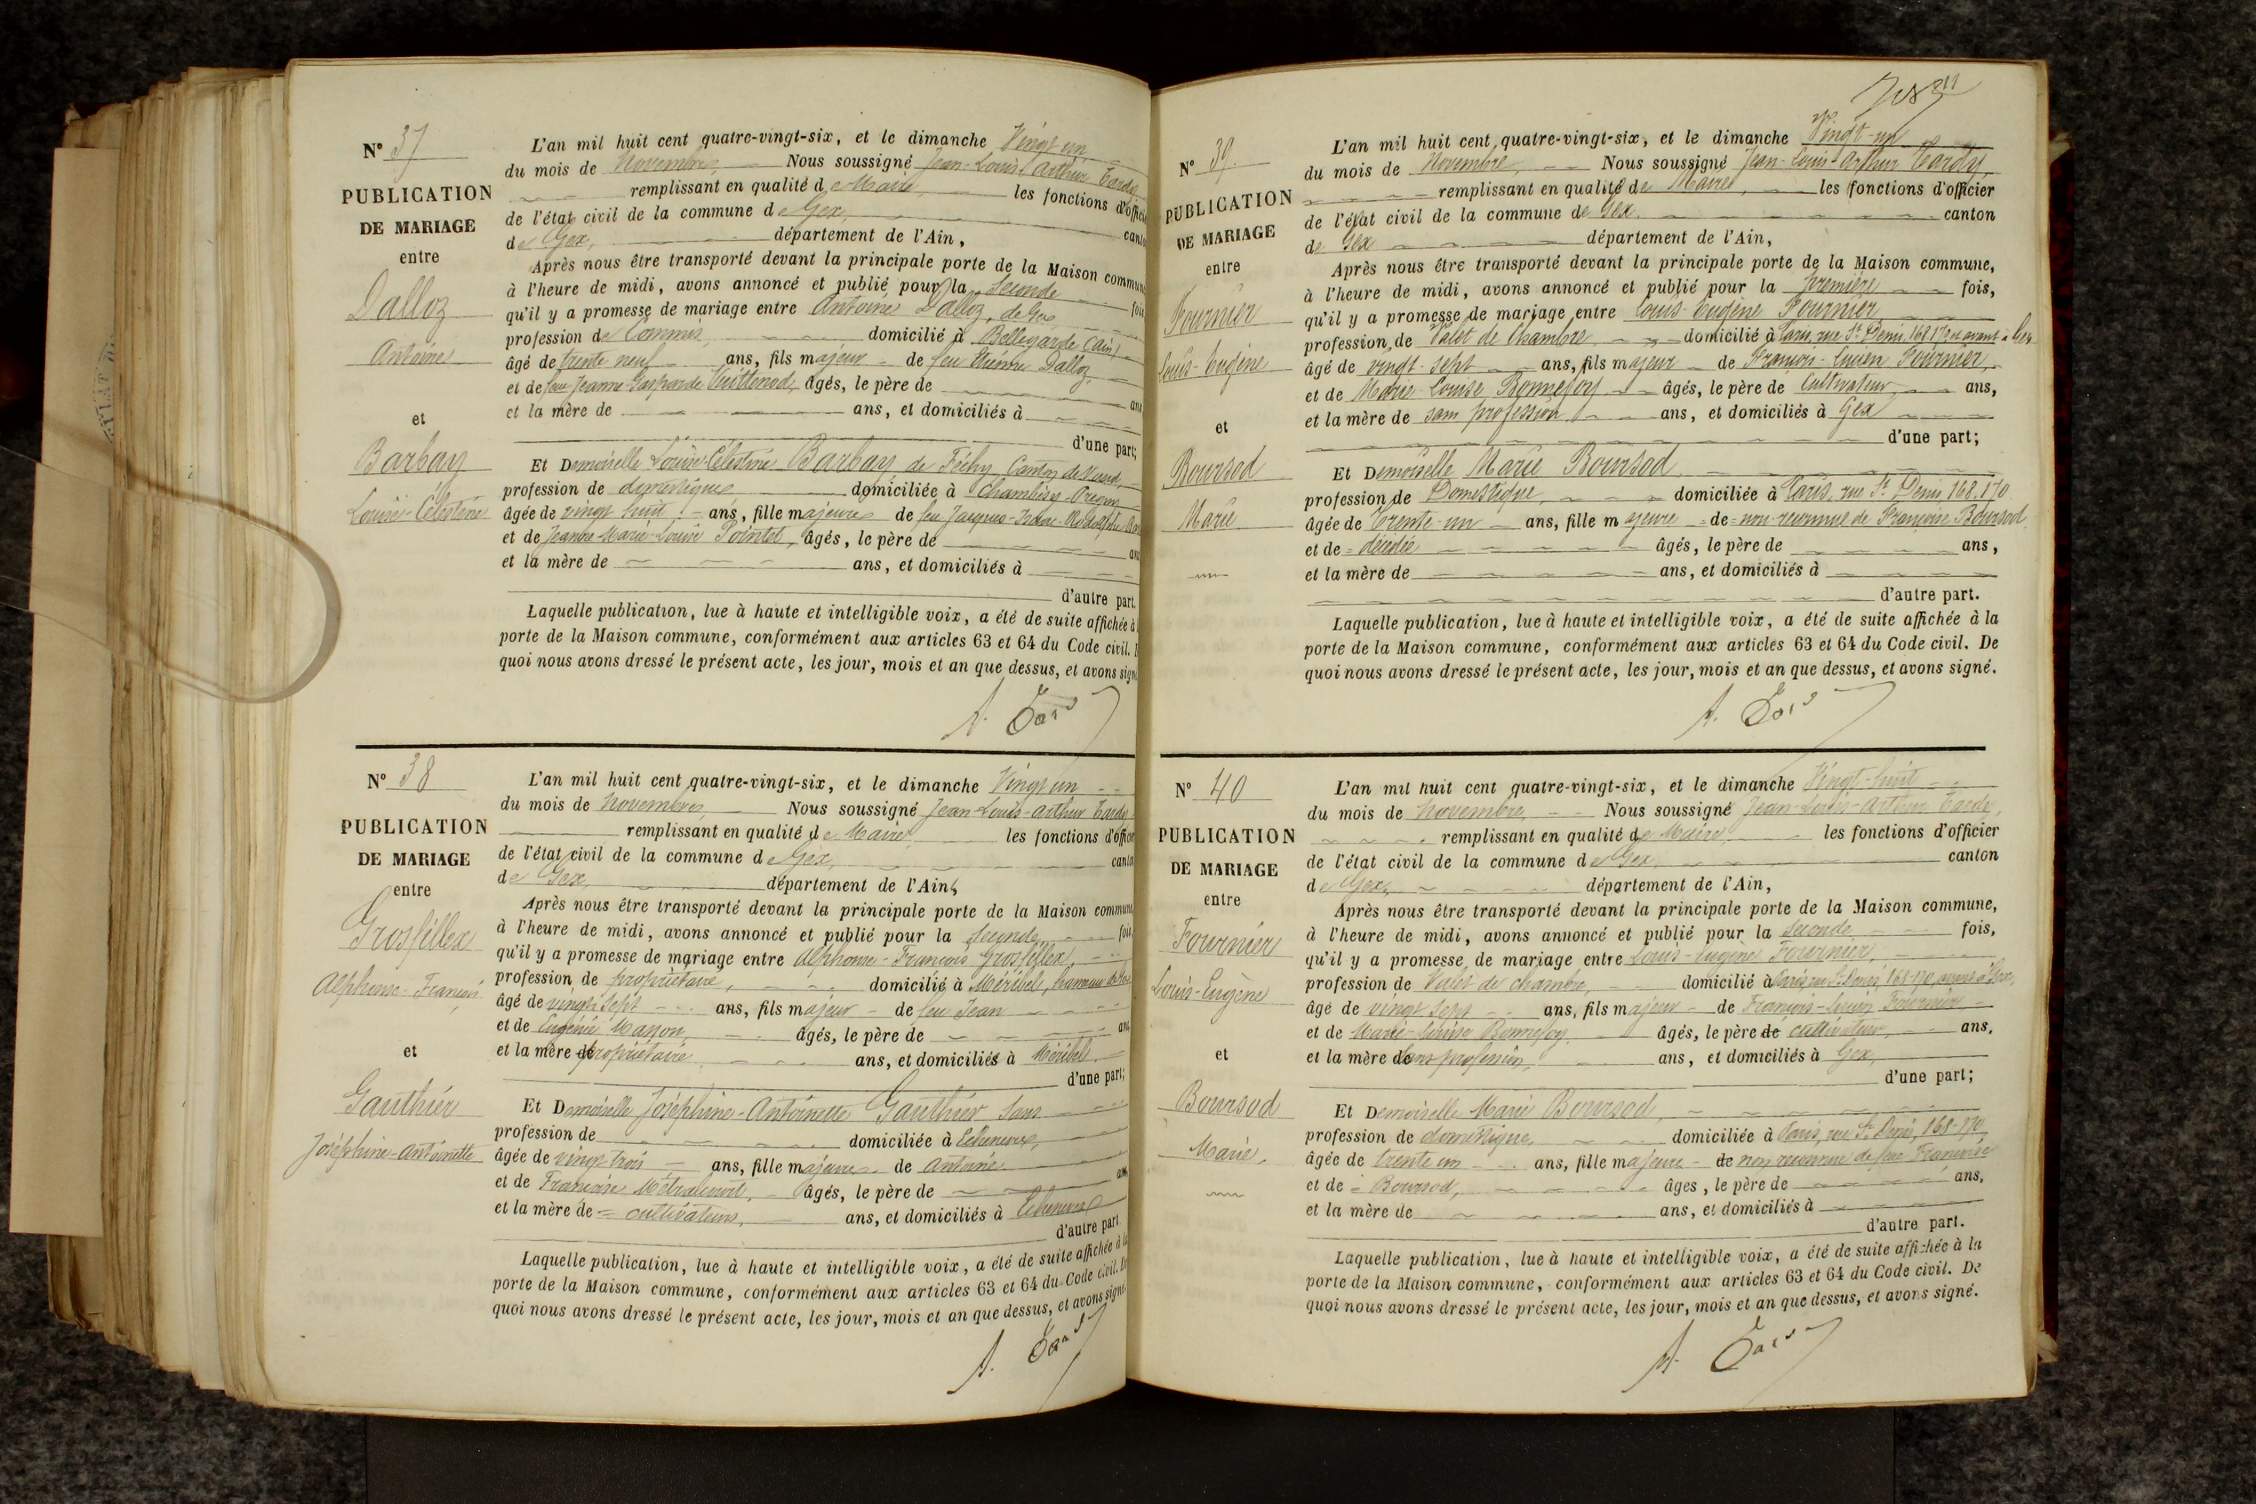 N° 37
PUBLICATION
DE MARIAGE
entre
Dalloz
Antoine
et
Barbay
Louise-Célestine
L'an mil huit cent quatre-vingt-six, et le dimanche Vingt un
du mois de Novembre, Nous soussigné Jean-Louis-Arthur Tardy
remplissant en qualité de Maire, les fonctions d'officier
de l'état civil de la commune de Gex, canton
de Gex, département de l'Ain,
Après nous être transporté devant la principale porte de la Maison commune
à l'heure de midi, avons annoncé et publié pour la Seconde fois
qu'il y a promesse de mariage entre Antoine Dalloz, de Gex
profession de Commis, domicilié à Bellegarde (Ain)
âgé de trente neuf ans, fils majeur de feu Etienne Dalloz,
et de feue Jeanne-Gasparde âgés, le père de ans
et la mère de ans, et domiciliés à
d'une part;
Et Demoiselle Louise-Célestine Barbay de Féchy Canton de Vaud,
profession de domestique domiciliée à Chambésy-Pregny
âgée de vingt huit ans, fille majeure de feu Jacques-Isaac-Rodolphe
et de Jeanne-Marie-Louise Pointet, âgés, le père de ans
et la mère de ans, et domiciliés à
d'autre part.
Laquelle publication, lue à haute et intelligible voix, a été de suite affichée à
porte de la Maison commune, conformément aux articles 63 et 64 du Code civil.
quoi nous avons dressé le présent acte, les jour, mois et an que dessus, et avons signé
N° 38
PUBLICATION
DE MARIAGE
entre
Grosfillex
Alphonse-François
et
Gauthier
Joséphine-Antoinette
L'an mil huit cent quatre-vingt-six, et le dimanche Vingt un
du mois de Novembre, Nous soussigné Jean-Louis-Arthur Tardy
remplissant en qualité de Maire les fonctions d'officier
de l'état civil de la commune de Gex, canton
de Gex, département de l'Ain,
Après nous être transporté devant la principale porte de la Maison commune
à l'heure de midi, avons annoncé et publié pour la Seconde fois
qu'il y a promesse de mariage entre Alphonse-François Grosfillex,
profession de propriétaire, domicilié à Méribel, hameau
âgé de vingt sept ans, fils majeur de feu Jean
et de Eugénie Maron, âgés, le père de ans
et la mère de propriétaire ans, et domiciliés à Méribel.
d'une part;
Et Demoiselle Joséphine-Antoinette Gauthier sans
profession de domiciliée à Echenevex,
âgée de vingt trois ans, fille majeure de Antoine
et de Françoise âgés, le père de ans
et la mère de = cultivateurs, ans, et domiciliés à Echenevex
d'autre part
Laquelle publication, lue à haute et intelligible voix, a été de suite affichée à la
porte de la Maison commune, conformément aux articles 63 et 64 du Code civil. De
quoi nous avons dressé le présent acte, les jour, mois et an que dessus, et avons signé.
N° 39
PUBLICATION
DE MARIAGE
entre
Fournier
Louis-Eugène
et
Boursod
Marie
L'an mil huit cent quatre-vingt-six, et le dimanche Vingt-un
du mois de Novembre, Nous soussigné Jean-Louis-Arthur Tardy,
remplissant en qualité de Maire, les fonctions d'officier
de l'état civil de la commune de Gex. canton
de Gex département de l'Ain,
Après nous être transporté devant la principale porte de la Maison commune,
à l'heure de midi, avons annoncé et publié pour la première fois,
qu'il y a promesse de mariage entre Louis-Eugène Fournier,
profession de Valet de Chambre domicilié à Paris, rue St Denis 168.170 et avant à Gex
âgé de vingt-sept ans, fils majeur de François-Lucien Fournier,
et de Marie-Louise Bonnefoy âgés, le père de Cultivateur ans,
et la mère de sans profession ans, et domiciliés à Gex
d'une part;
Et Demoiselle Marie Boursod
profession de Domestique, domiciliée à Paris, rue St Denis 168.170
âgée de trente-un ans, fille majeure de = non reconnue de Françoise Boursod,
et de = décédée âgés, le père de ans,
et la mère de ans, et domiciliés à
d'autre part.
Laquelle publication, lue à haute et intelligible voix, a été de suite affichée à la
porte de la Maison commune, conformément aux articles 63 et 64 du Code civil. De
quoi nous avons dressé le présent acte, les jour, mois et an que dessus, et avons signé.
N° 40
PUBLICATION
DE MARIAGE
entre
Fournier
Louis-Eugène
et
Boursod
Marie.
L'an mil huit cent quatre-vingt-six, et le dimanche Vingt-huit
du mois de Novembre, Nous soussigné Jean-Louis-Arthur Tardy,
remplissant en qualité de Maire, les fonctions d'officier
de l'état civil de la commune de Gex, canton
de Gex, département de l'Ain,
Après nous être transporté devant la principale porte de la Maison commune,
à l'heure de midi, avons annoncé et publié pour la Seconde fois,
qu'il y a promesse de mariage entre Louis-Eugène Fournier,
profession de Valet de chambre, domicilié à Paris, rue St Denis, 168-170, avant à Gex,
âgé de vingt sept ans, fils majeur de François-Lucien Fournier
et de Marie-Louise Bonnefoy, âgés, le père de cultivateur, ans,
et la mère de sans profession, ans, et domiciliés à Gex,
d'une part;
Et Demoiselle Marie Boursod,
profession de domestique, domiciliée à Paris, rue St Denis, 168-170
âgée de trente un ans, fille majeure de non reconnue de feue Françoise
et de = Boursod, âgés, le père de ans,
et la mère de ans, et domiciliés à
d'autre part.
Laquelle publication, lue à haute et intelligible voix, a été de suite affichée à la
porte de la Maison commune, conformément aux articles 63 et 64 du Code civil. De
quoi nous avons dressé le présent acte, les jour, mois et an que dessus, et avons signé.